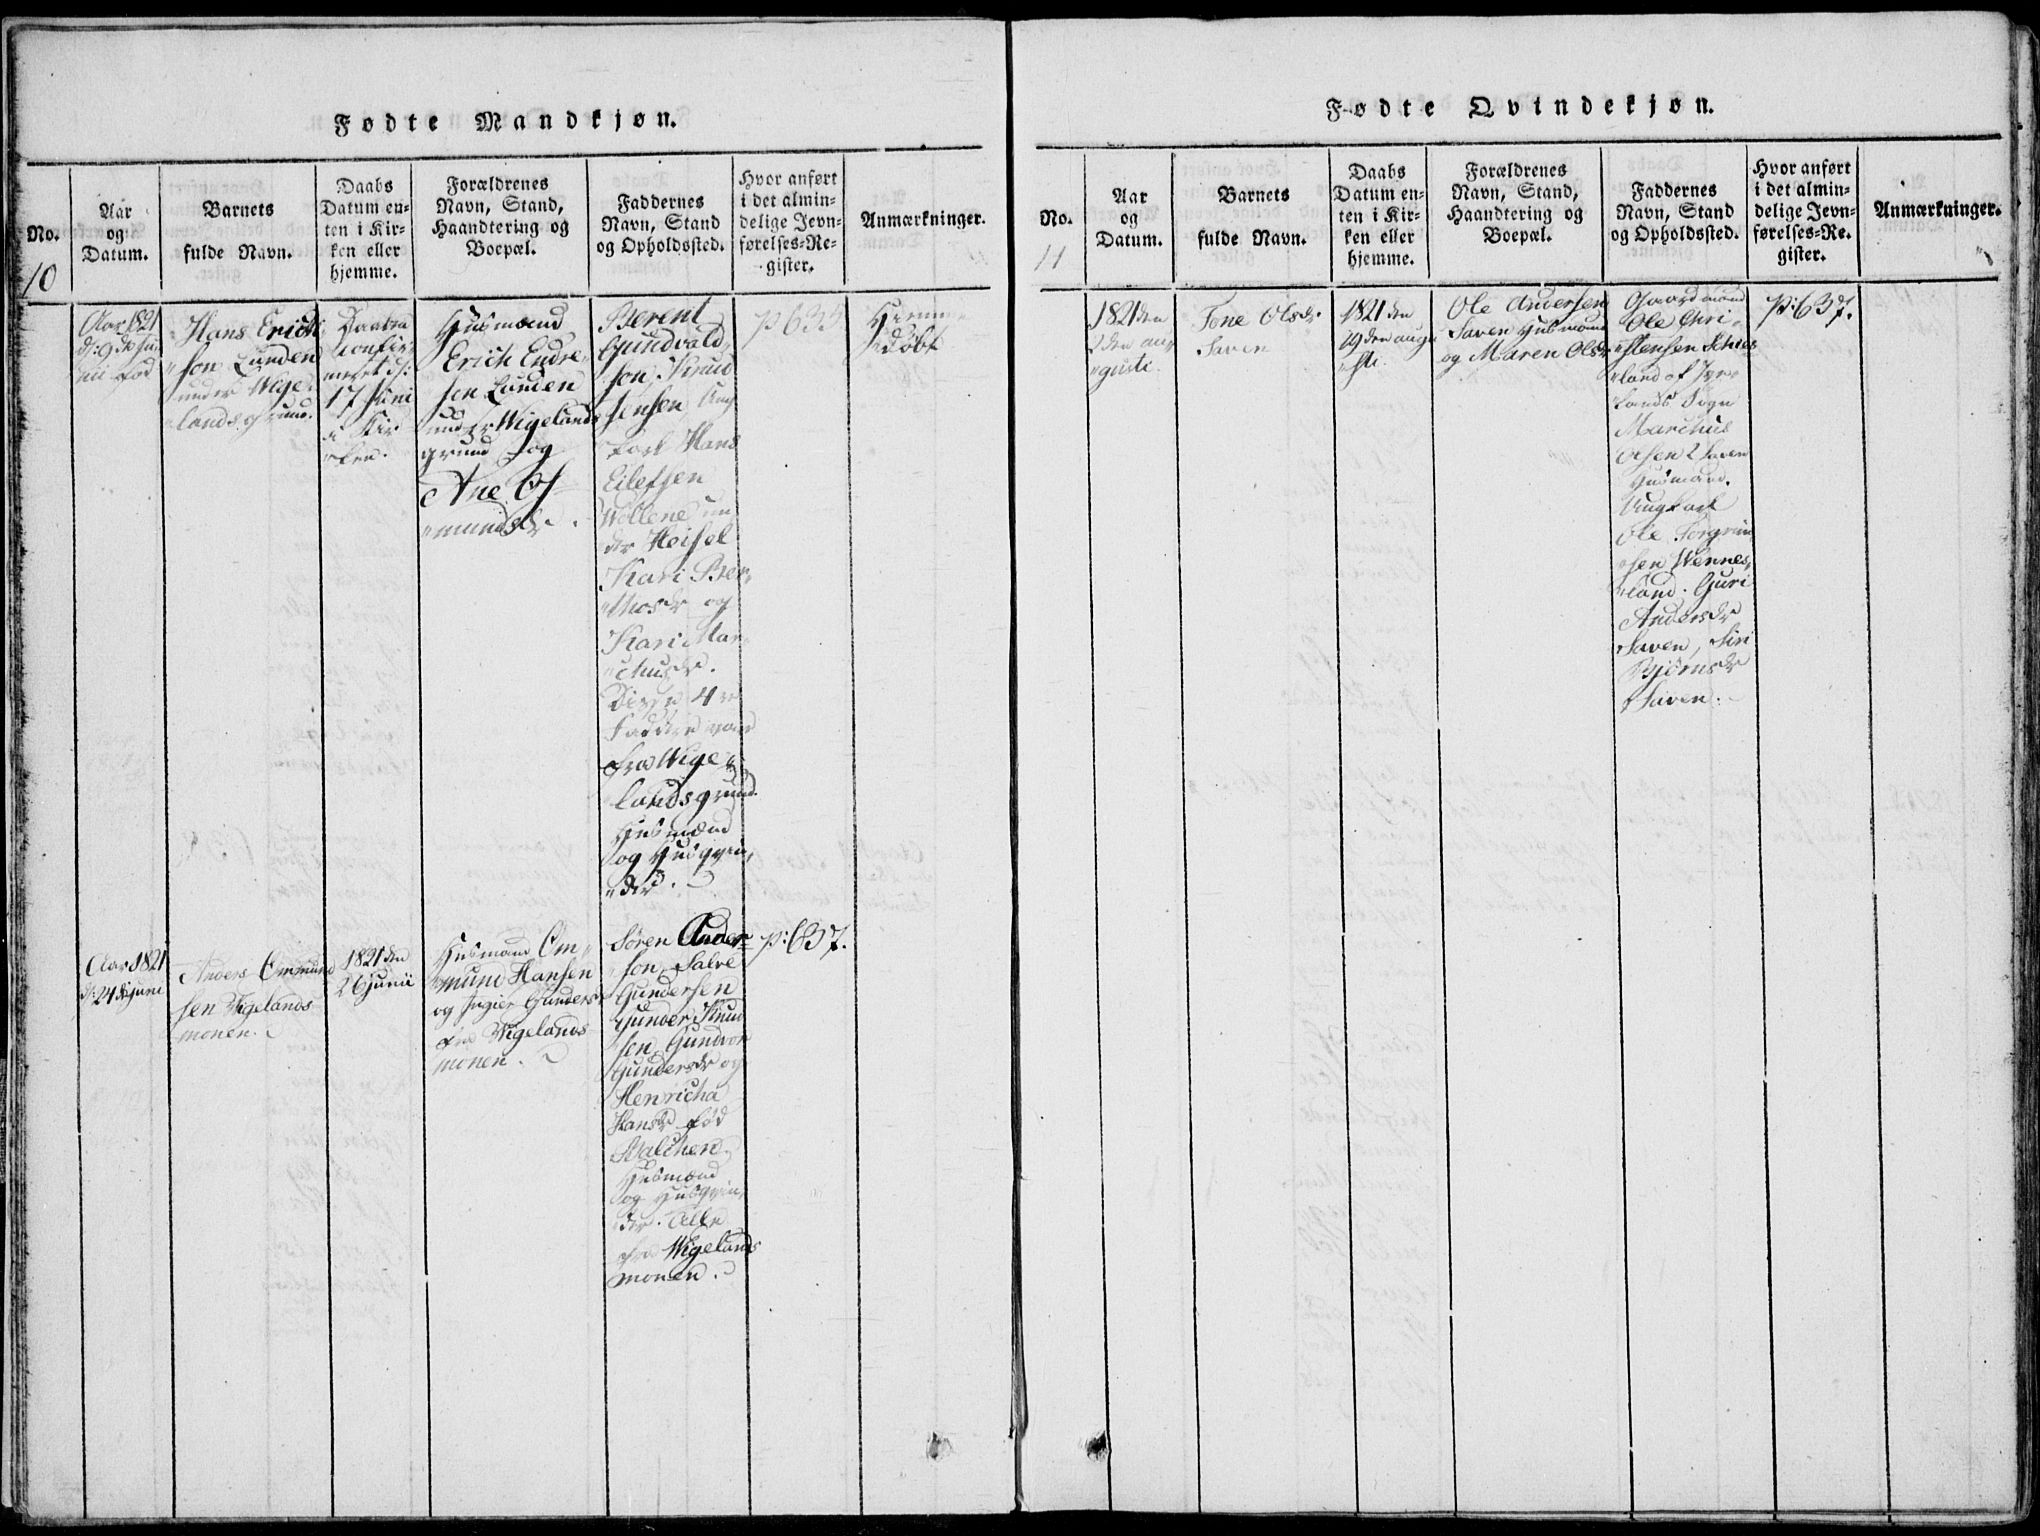 Fødte Mandkjøn.
No.
10
Aar
og
Datum.
Barnets
fulde Navn.
Daabs
Datum en-
ten i Kir-
ken eller
hjemme.
Forældrenes
Navn, Stand,
Haandtering og
Boepæl.
Faddernes
Navn, Stand
og Opholdssted.
Hvor anført
i det almin-
delige Jevn-
førelses-Re-
gister.
Anmærkninger.
Aar 1821
d: 9de Ju
nii fød
Hans Erich
sen Lunden
under Wige-
landsgrund.
Daaben
Confir-
meret d:
17 Juni
i Kir
ken.
Husmand
Erich Endre-
sen Lunden
under Wigelands
grund og
Ane Os
munsdr.
Berent
Gundvald
son, Knud
Jensen Ung
karl Hans
Eilefsen
Wollene un
der Heisel
Kari Ber-
thosdr og
Kari Mar-
chusdr.
Disse 4re
Faddere var
fra Wige-
landsgrund
Husmænd
og Husqvin-
der.
p 635
Hjemme
døbt
Aar 1821
d: 24de juni
Anders Ommund
sen Wigelands
monen.
1821 den
26 junii
Husmand Om-
mund Hansen
og Ingier Gundersdr
fra Wigelands
monen.
Søren Ander-
son, Salve
Gundersen
Gunder Knud
sen, Gundvor
Gundersdr og
Henricha
Hansdr fød
Balchen.
Husmænd
og Husqvin-
der. Alle
fra Wigelands
monen.
p: 637.
Fødte Qvindekjøn.
No.
11
Aar
og
Datum.
Barnets
fulde Navn.
Daabs
Datum en-
ten i Kir-
ken eller
hjemme.
Forældrenes
Navn, Stand,
Haandtering og
Boepæl.
Faddernes
Navn, Stand
og Opholdssted.
Hvor anført
i det almin-
delige Jevn-
førelses-Re-
gister.
Anmærkninger.
1821 den
2den au-
gusti.
Tone Olsdr
Saven
1821 den
19den augu
sti.
Ole Andersen
Saven Husmand
og Maren Olsdr
Gaardmand
Ole Chri-
stensen
land af
lands Sogn
Marchus
Olsen Saven
Husmand.
Ungkarl
Ole Torgrim
sen Wennes-
land. Guri
Andersdr
Saven, Siri
Bjørnsdr
Saven.
p: 637.